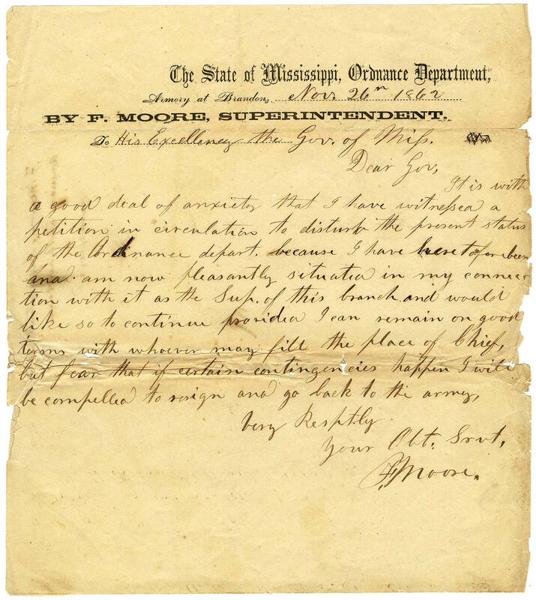 The State of Mississippi, Ordnance Department,
Armory at Brandon, Nov. 26th 1862
BY F. MOORE, SUPERINTENDENT.
To His Excellency the Gov. of Miss.
Dear Gov,
It is with
a good deal of anxiety that I have witnessed a
petition in circulation to disturb the present status
of the Ordnance depart. because I have heretofore been
and am now pleasantly situated in my connec
tion with it as the Sup. of this branch and would
like so to continue provided I can remain on good
terms with whoever may fill the place of Chief,
but fear that if certain contingencies happen I will
be compelled to resign and go back to the army,
Very Resptly
Your Obt. Srvt,
F Moore.